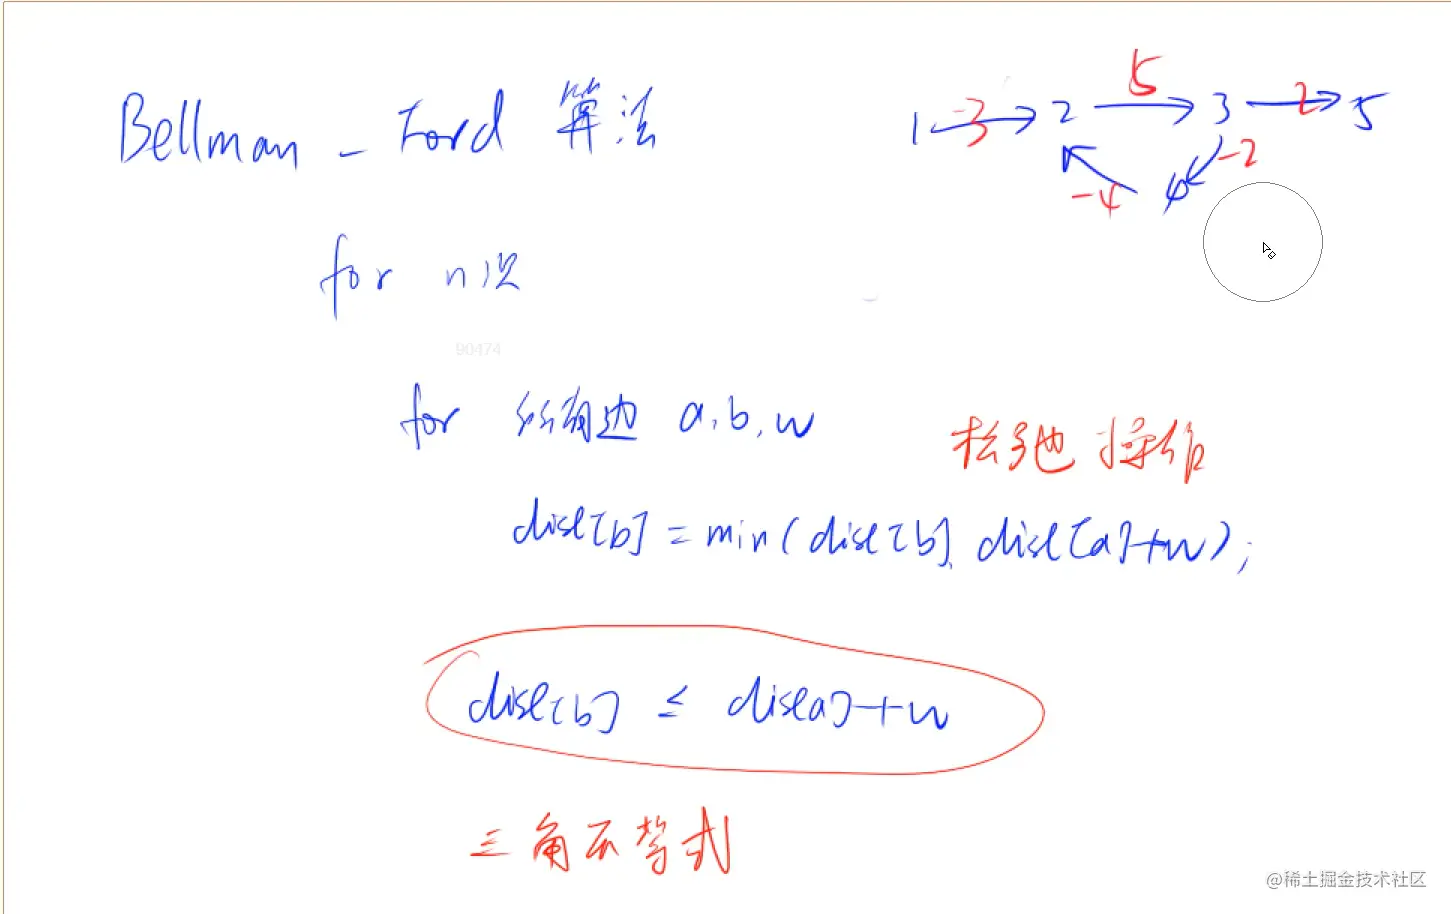 Bellman - Ford 算法
1 -3 2 5 3 2 5
-4 4 -2
for n次
90474
for 所有边 a,b,w
松弛操作
dist[b] = min(dist[b], dist[a]+w);
dist[b] ≤ dist[a]+w
三角不等式
@稀土掘金技术社区